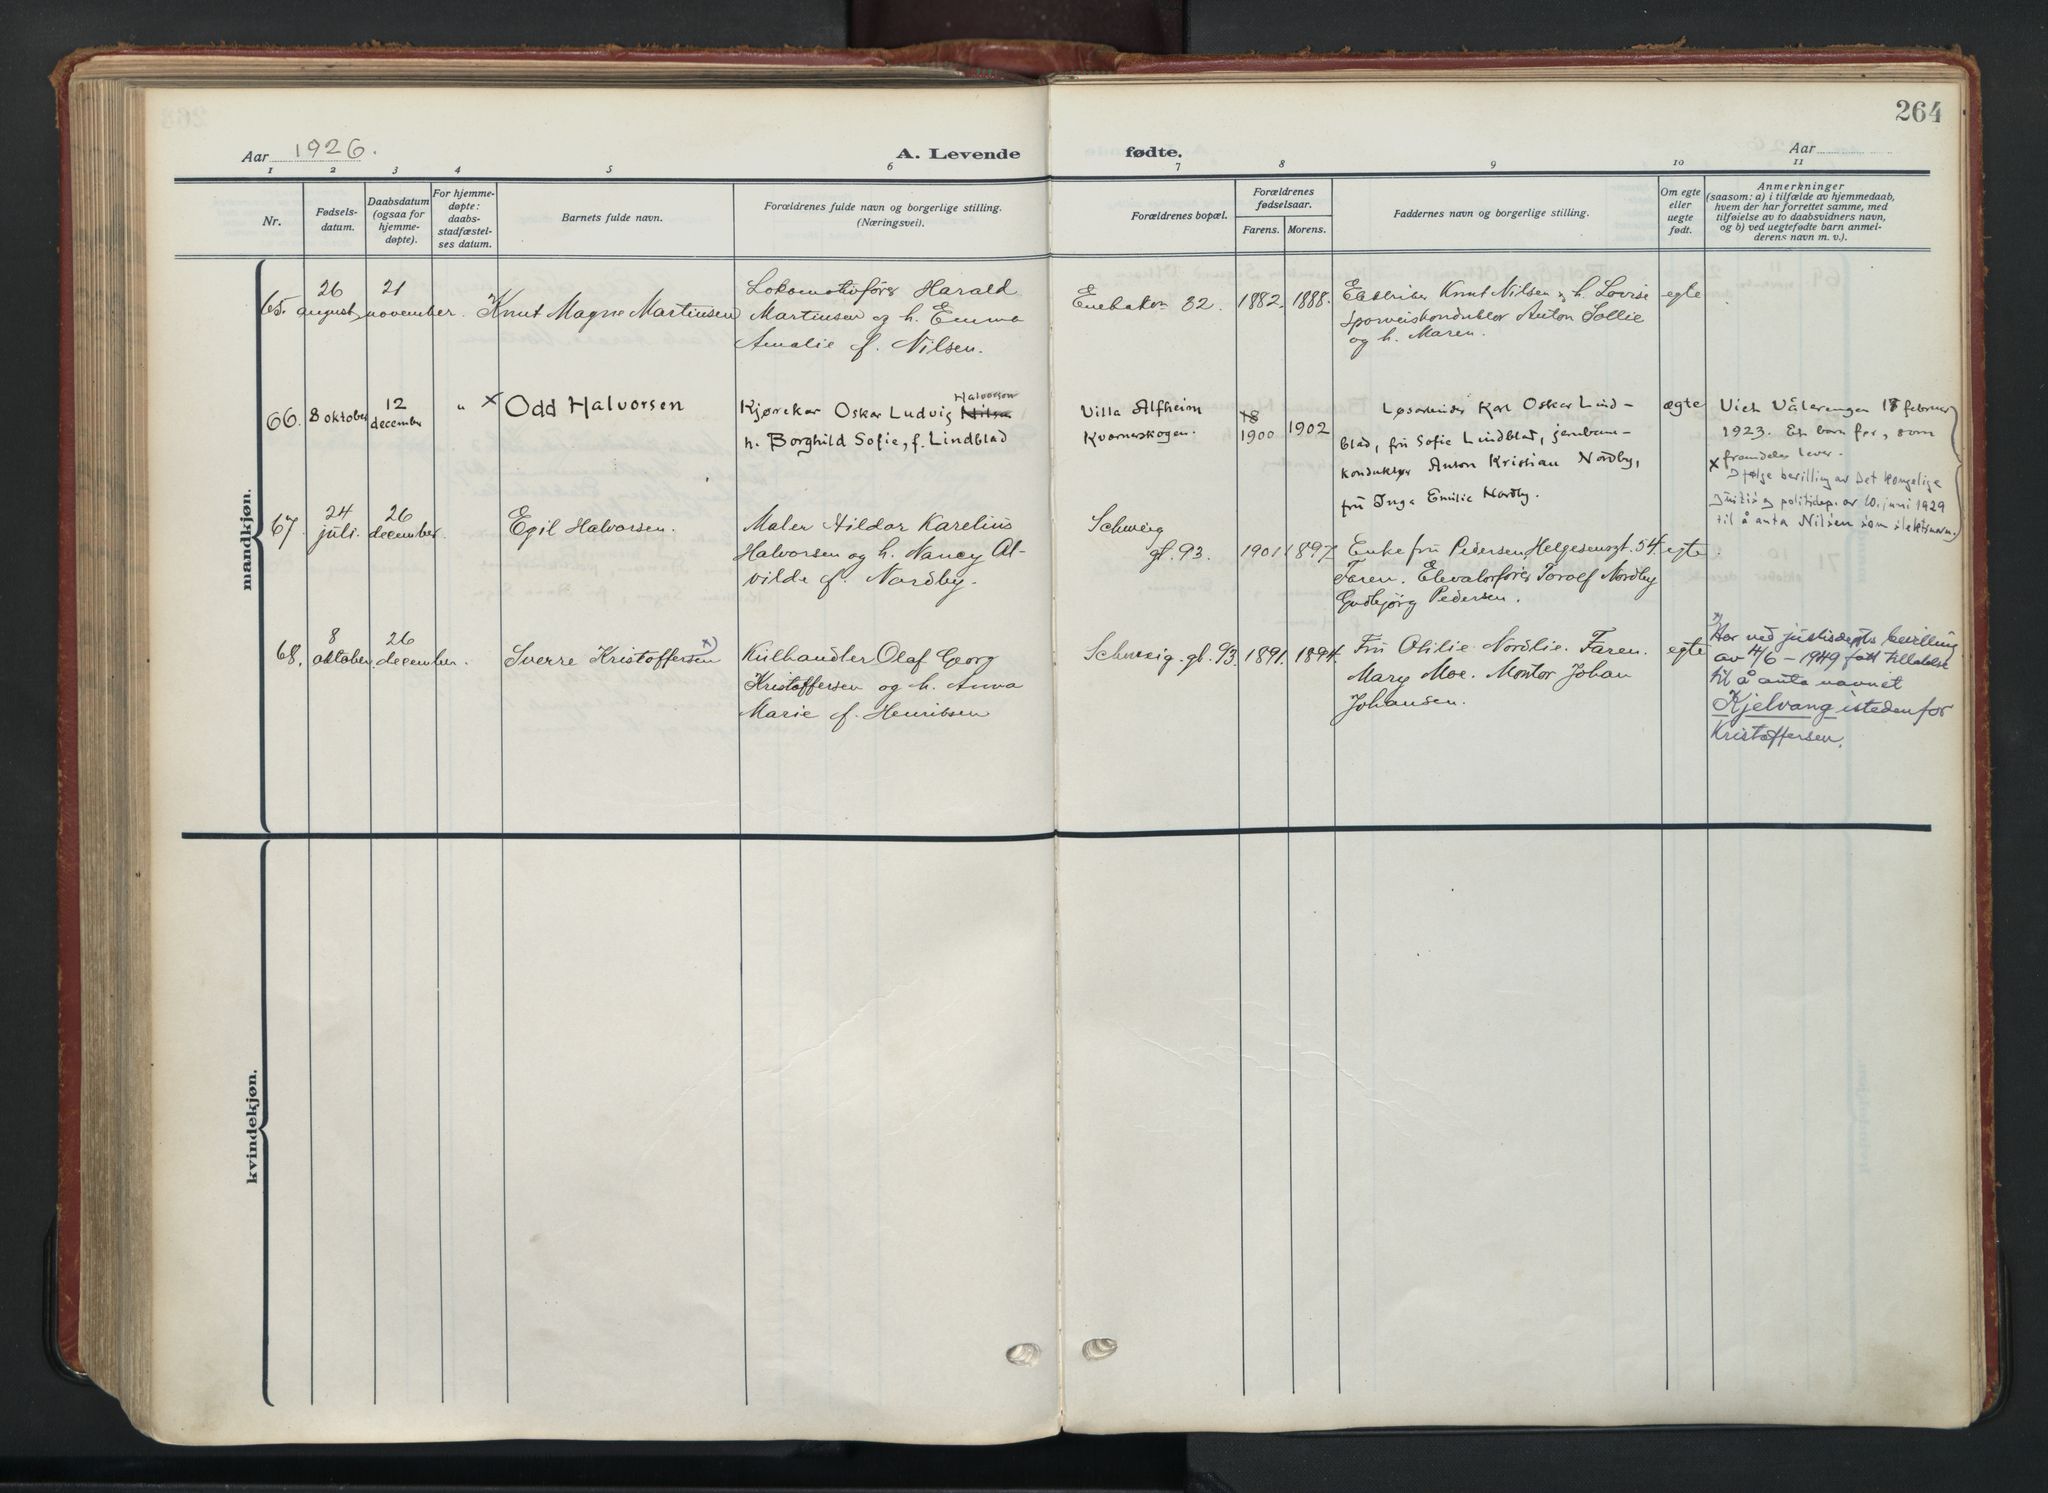 264
Aar 1926.
A. Levende fødte.
Aar
1 2 3 4 5 6 7 8 9 10 11
Nr.
Fødsels-
datum.
Daabsdatum
(ogsaa for
hjemme-
døpte).
For hjemme-
døpte:
daabs-
stadfæstel-
ses datum.
Barnets fulde navn.
Forældrenes fulde navn og borgerlige stilling.
(Næringsvei).
Forældrenes bopæl.
Forældrenes
fødselsaar.
Farens. Morens.
Faddernes navn og borgerlige stilling.
Om egte
eller
uegte
født.
Anmerkninger
(saasom: a) i tilfælde av hjemmedaab,
hvem der har forrettet samme, med
tilføielse av to daabsvidners navn,
og b) ved uegtefødte barn anmel-
derens navn m. v.).
mandkjøn.
65.
26
august
21
november.
Knut Magne Martinsen
Lokomotivfører Harald
Martinsen og h. Emma
Amalie f. Nilsen.
Enebakvn 32.
1882. 1888.
Knut Nilsen og h. Lovise
Sporveiskonduktør Anton Sollie
og h. Maren.
egte
66.
8 oktober
12
december
"
x Odd Halvorsen
Halvorsen
Kjørekar Oskar Ludvig Nilsen
h. Borghild Sofie, f. Lindblad
Villa Alfheim
Kværnerskogen.
18
1900
1902
Løsarbeider Karl Oskar Lind-
blad, fru Sofie Lindblad, jernban-
konduktør Anton Kristian Nordby,
fru Inga Emilie Nordby.
ægte
Viet Vålerengen 17 februar
1923. Et barn før, som
fremdeles lever.
x Ifølge bevilling av Det kongelige
Justis og politidep. av 10. juni 1929
til å anta Nilsen som slektsnavn.
67.
24
juli.
26
december.
Egil Halvorsen.
Maler Hildar Karelius
Halvorsen og h. Nancy Al-
vilde f. Nordby.
Schweig
gt. 93.
1901 1897
Enkefru Pedersen Helgesensgt. 54
Faren. Elevatorfører Torolf Nordby
Gudbjørg Pedersen.
egte.
68.
8
oktober
26
december.
Sverre Kristoffersen x)
Kulhandler Olaf Georg
Kristoffersen og h. Anna
Marie f. Henriksen
Schweig. gt. 93.
1891. 1894.
Fru Othilie Nordlie. Faren.
Mary Moe. Montør Johan
Johansen.
egte
x) Har ved justisdepts bevilling
av 4/6 - 1949 fått tillatelse
til å anta navnet
Kjelvang isteden for
Kristoffersen.
kvindekjøn.